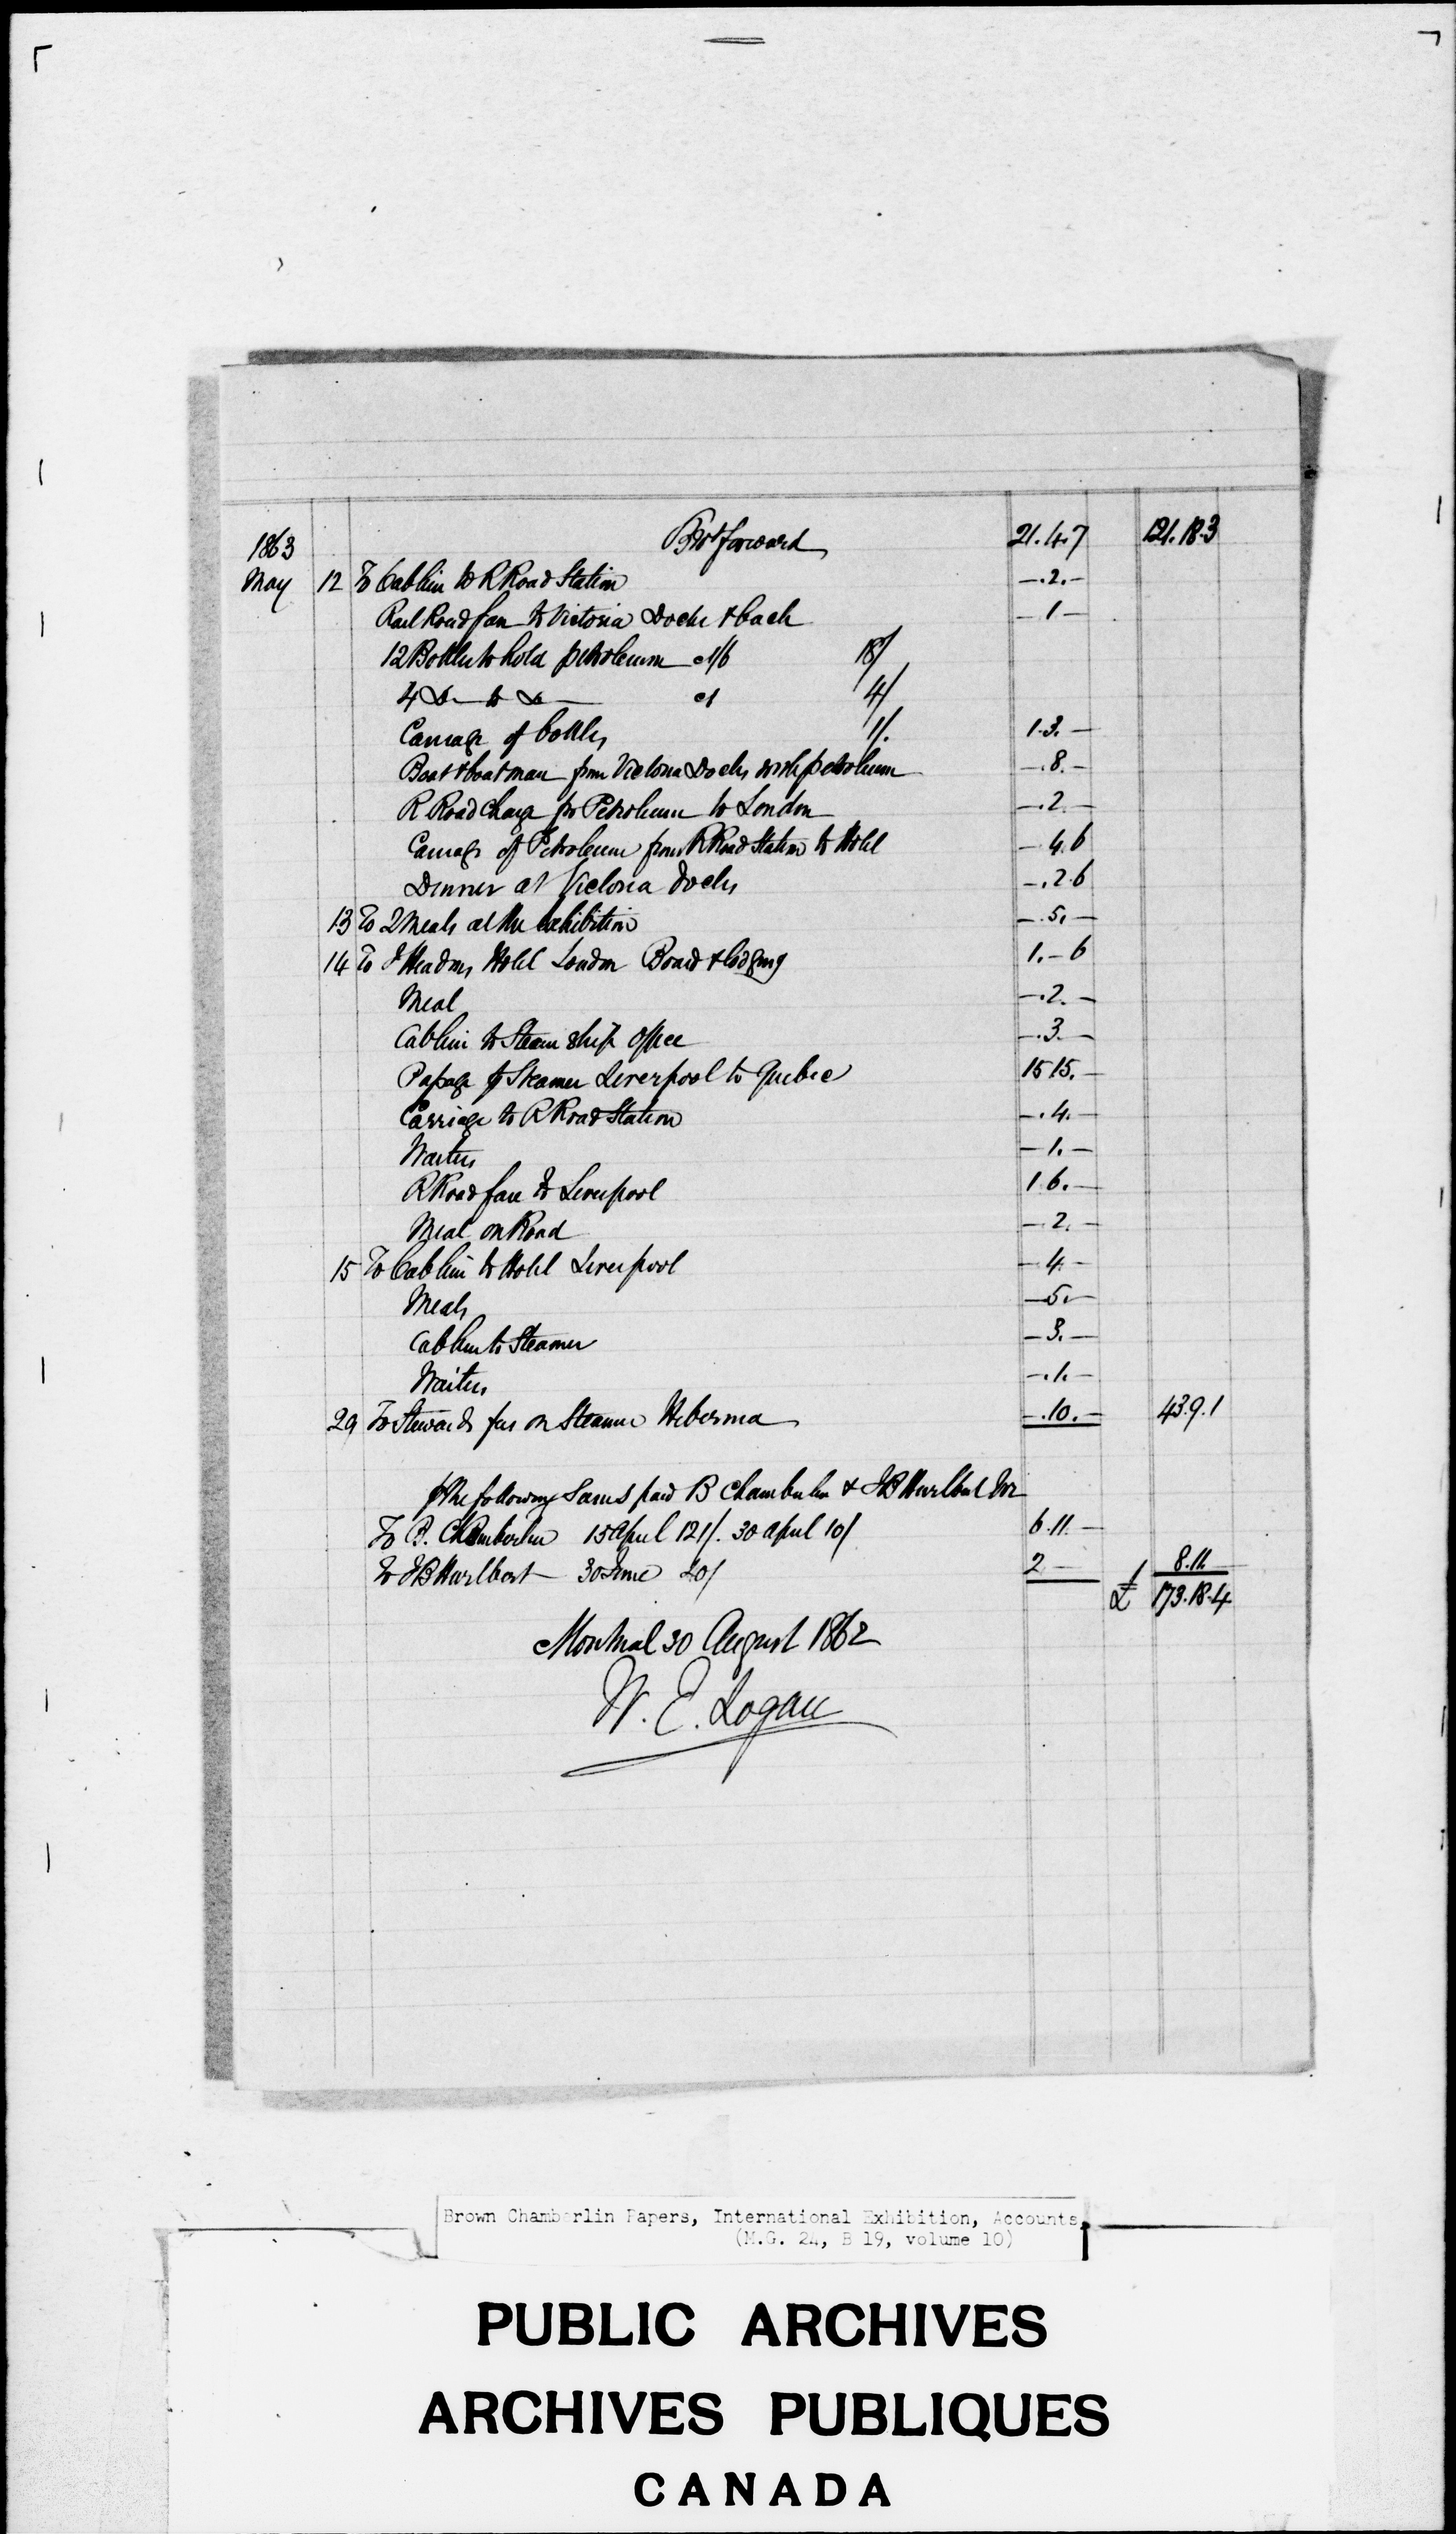 1863 Brot forward 21.4.7 121.18.3
May 12 To Cab hire to R Road Station -.2.-
Rail Road fare to Victoria Docks & back -1-
12 Bottles to hold petroleum 1/6 18/
4 Do — to Do — 1 4/
Carriage of bottles 1/. 1.3.-
Boat & boatman from Victoria Docks with petroleum -.8.-
R Road charge for Petroleum to London -.2.-
Carriage of Petroleum from R Road Station to Hotel -4.6
Dinner at Victoria Docks -.2.6
13 To 2 Meals at the Exhibition -.5.-
14 To Hotel London Board & lodging 1.-6
Meal -.2.-
Cab hire to Steam ship Office -.3.-
Passage by Steamer Liverpool to Quebec 15.15.-
Carriage to R Road Station -.4.-
Waiters -1.-
R Road fare to Liverpool 1.6.-
Meal on Road -2.-
15 To Cab hire to Hotel Liverpool -4-
Meals -5.-
Cab hire to Steamer -3.-
Waiters -.1.-
29 To Stewards fees on Steamer Hibernia -.10.- 43.9.1
the following Sums paid B Chamberlin & J B Hurlbert
To B. Chamberlin 15 April 121/. 30 April 10/ 6.11.-
To J B Hurlbert 30 June 40/ 2 - 8.11.
£ 173.18.4
Montreal 30 August 1862
W. E. Logan
Brown Chamberlin Papers, International Exhibition, Accounts,
(M.G. 24, B 19, volume 10)
PUBLIC ARCHIVES
ARCHIVES PUBLIQUES
CANADA